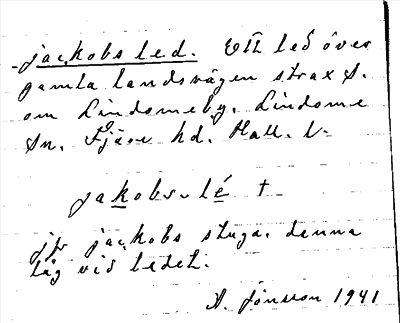 jackobs led. Ett led över
gamla landsvägen strax S.
om Lindomeby, Lindome
Sn. Fjäre hd. Hall. l.
jakobs-lé †
jfr jackobs stuga. denna
låg vid ledet.
A. Jónsson 1941